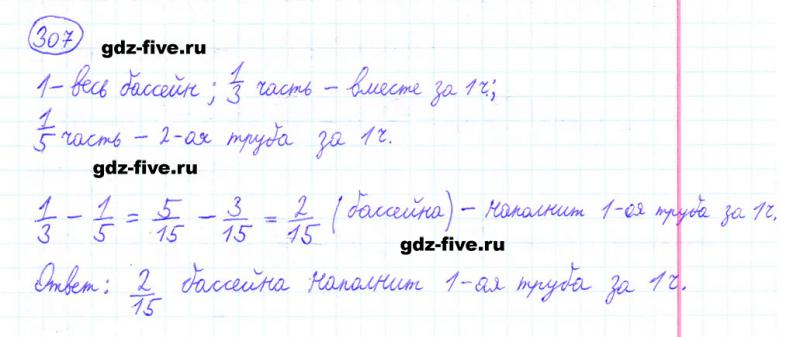 307
gdz-five.ru
1 – весь бассейн; 1/3 часть – вместе за 1ч.;
1/5 часть – 2-ая труба за 1ч.
gdz-five.ru
1/3 – 1/5 = 5/15 – 3/15 = 2/15 (бассейна) – наполнит 1-ая труба за 1ч.
gdz-five.ru
Ответ: 2/15 бассейна наполнит 1-ая труба за 1ч.